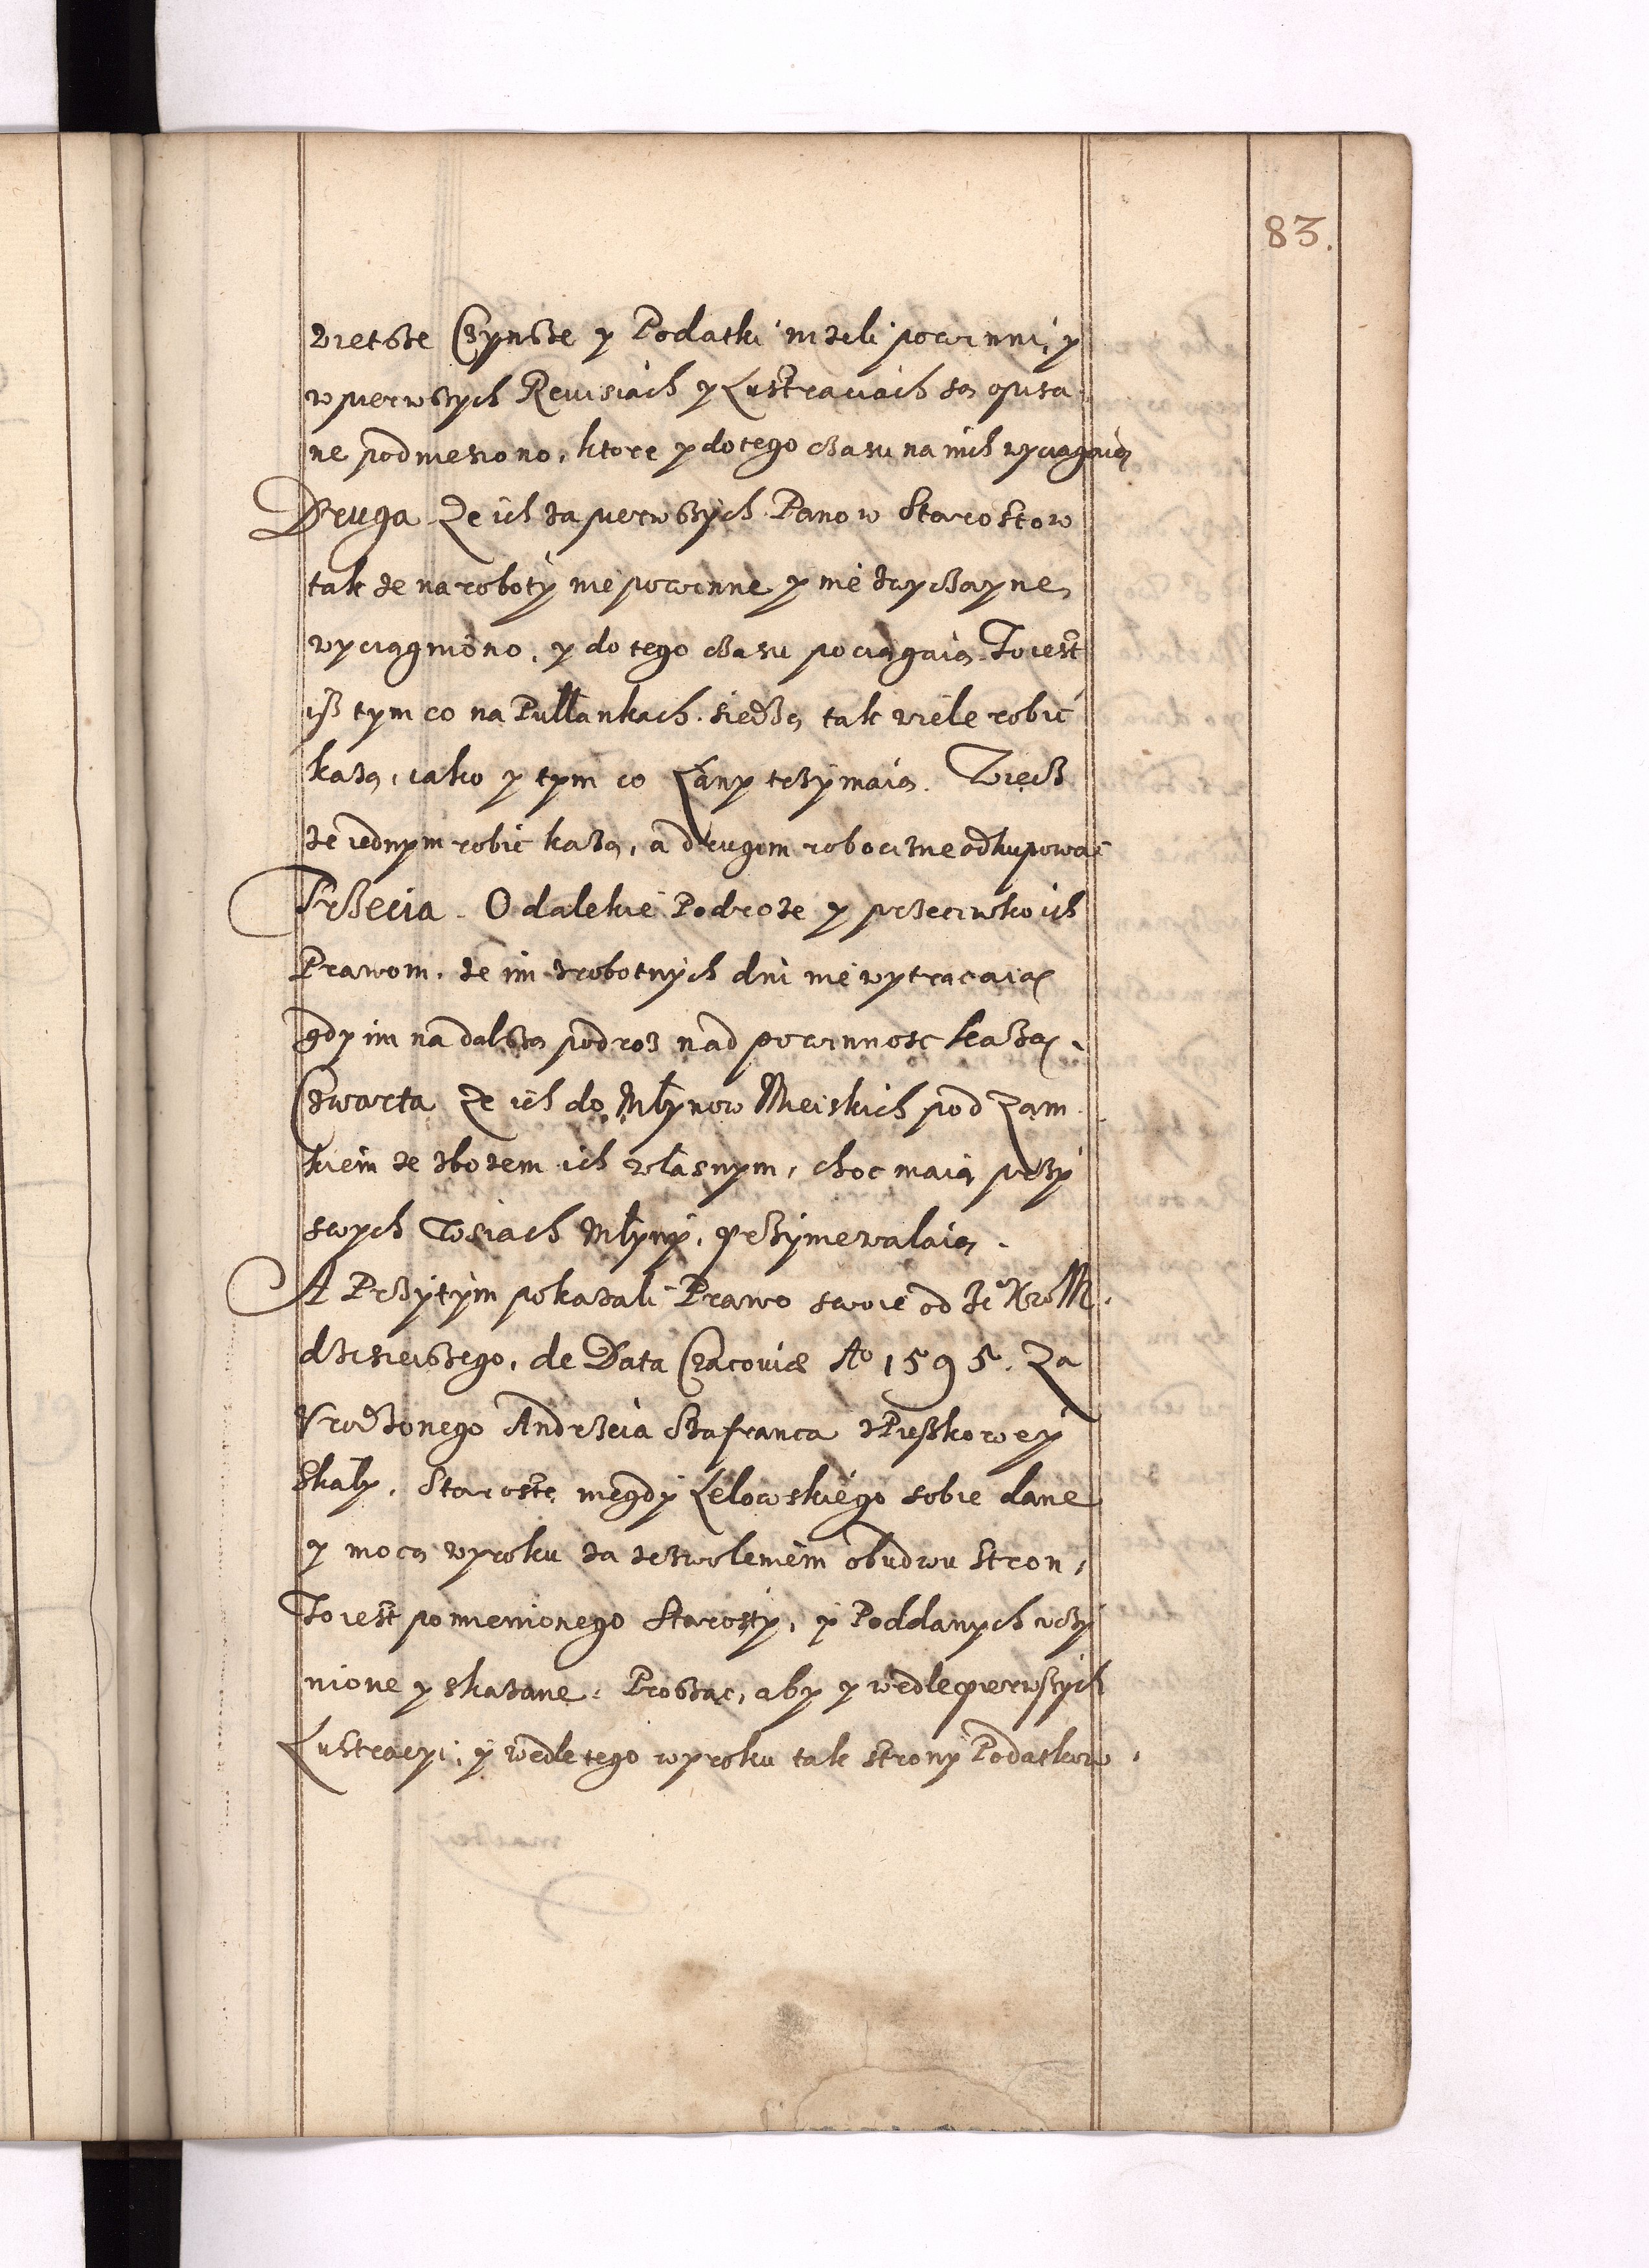 83.
wietsze Czynsze y Podatki nizeli powinni, y
w pierwszych Rewisiach y Lustraciach są opisa
ne podniesiono, ktore y do tego czasu na nich wyciagaią
Druga Ze ich za pierwszych Panow Starostow
takze na roboty niepowinne y niezwyczayne
wyciągniono, y do tego czasu pociągaią. To iest
isz tym co na Pullankach siedzą tak wiele robić
każą, iako y tym co Łany trzymaią. Tudziesz
ze iednym robić każą, a drugim robocizne odkupować
Trzecia. O dalekie Podroze y przeciwko ich
Prawom, ze im zrobotnych dni nie wytrącaią
gdy im na dalszą podroz nad powinnosc każą.
Czwarta Ze ich do Młynow Mieiskich pod Zam
kiem ze zbozem ich własnym, choc maią przy
swych Wsiach Młyny, przyniewalaią.
A Przytym pokazali Prawo swoie od Je° Kro M.
dzisieiszego, de Data Cracoviæ A° 1595. Za
Urodzonego Andrzeia Szafranca z Pieskowey
Skały, Starostę niegdy Lelowskiego sobie dane
y mocą wyroku za zezwoleniem obudwu stron,
To iest pomienionego Starosty, y Poddanych uczy
nione y skazane. Prosząc, aby y wedle pierwszych
Lustracyi, y wedle tego wyroku tak strony Podatkow.